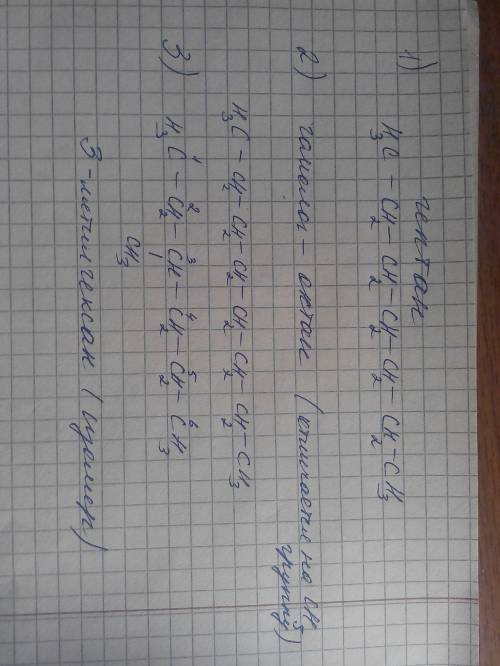 1) гептан
H₃C – CH₂ – CH₂ – CH₂ – CH₂ – CH₂ – CH₃
2) гамолог – октан (отличается на CH
группу)
H₃C – CH₂ – CH₂ – CH₂ – CH₂ – CH₂ – CH₂ – CH₃
1 2 3 4 5 6
3) H₃C – CH₂ – CH – CH₂ – CH₂ – CH₃
CH₃
3-метил гексан (изомер)